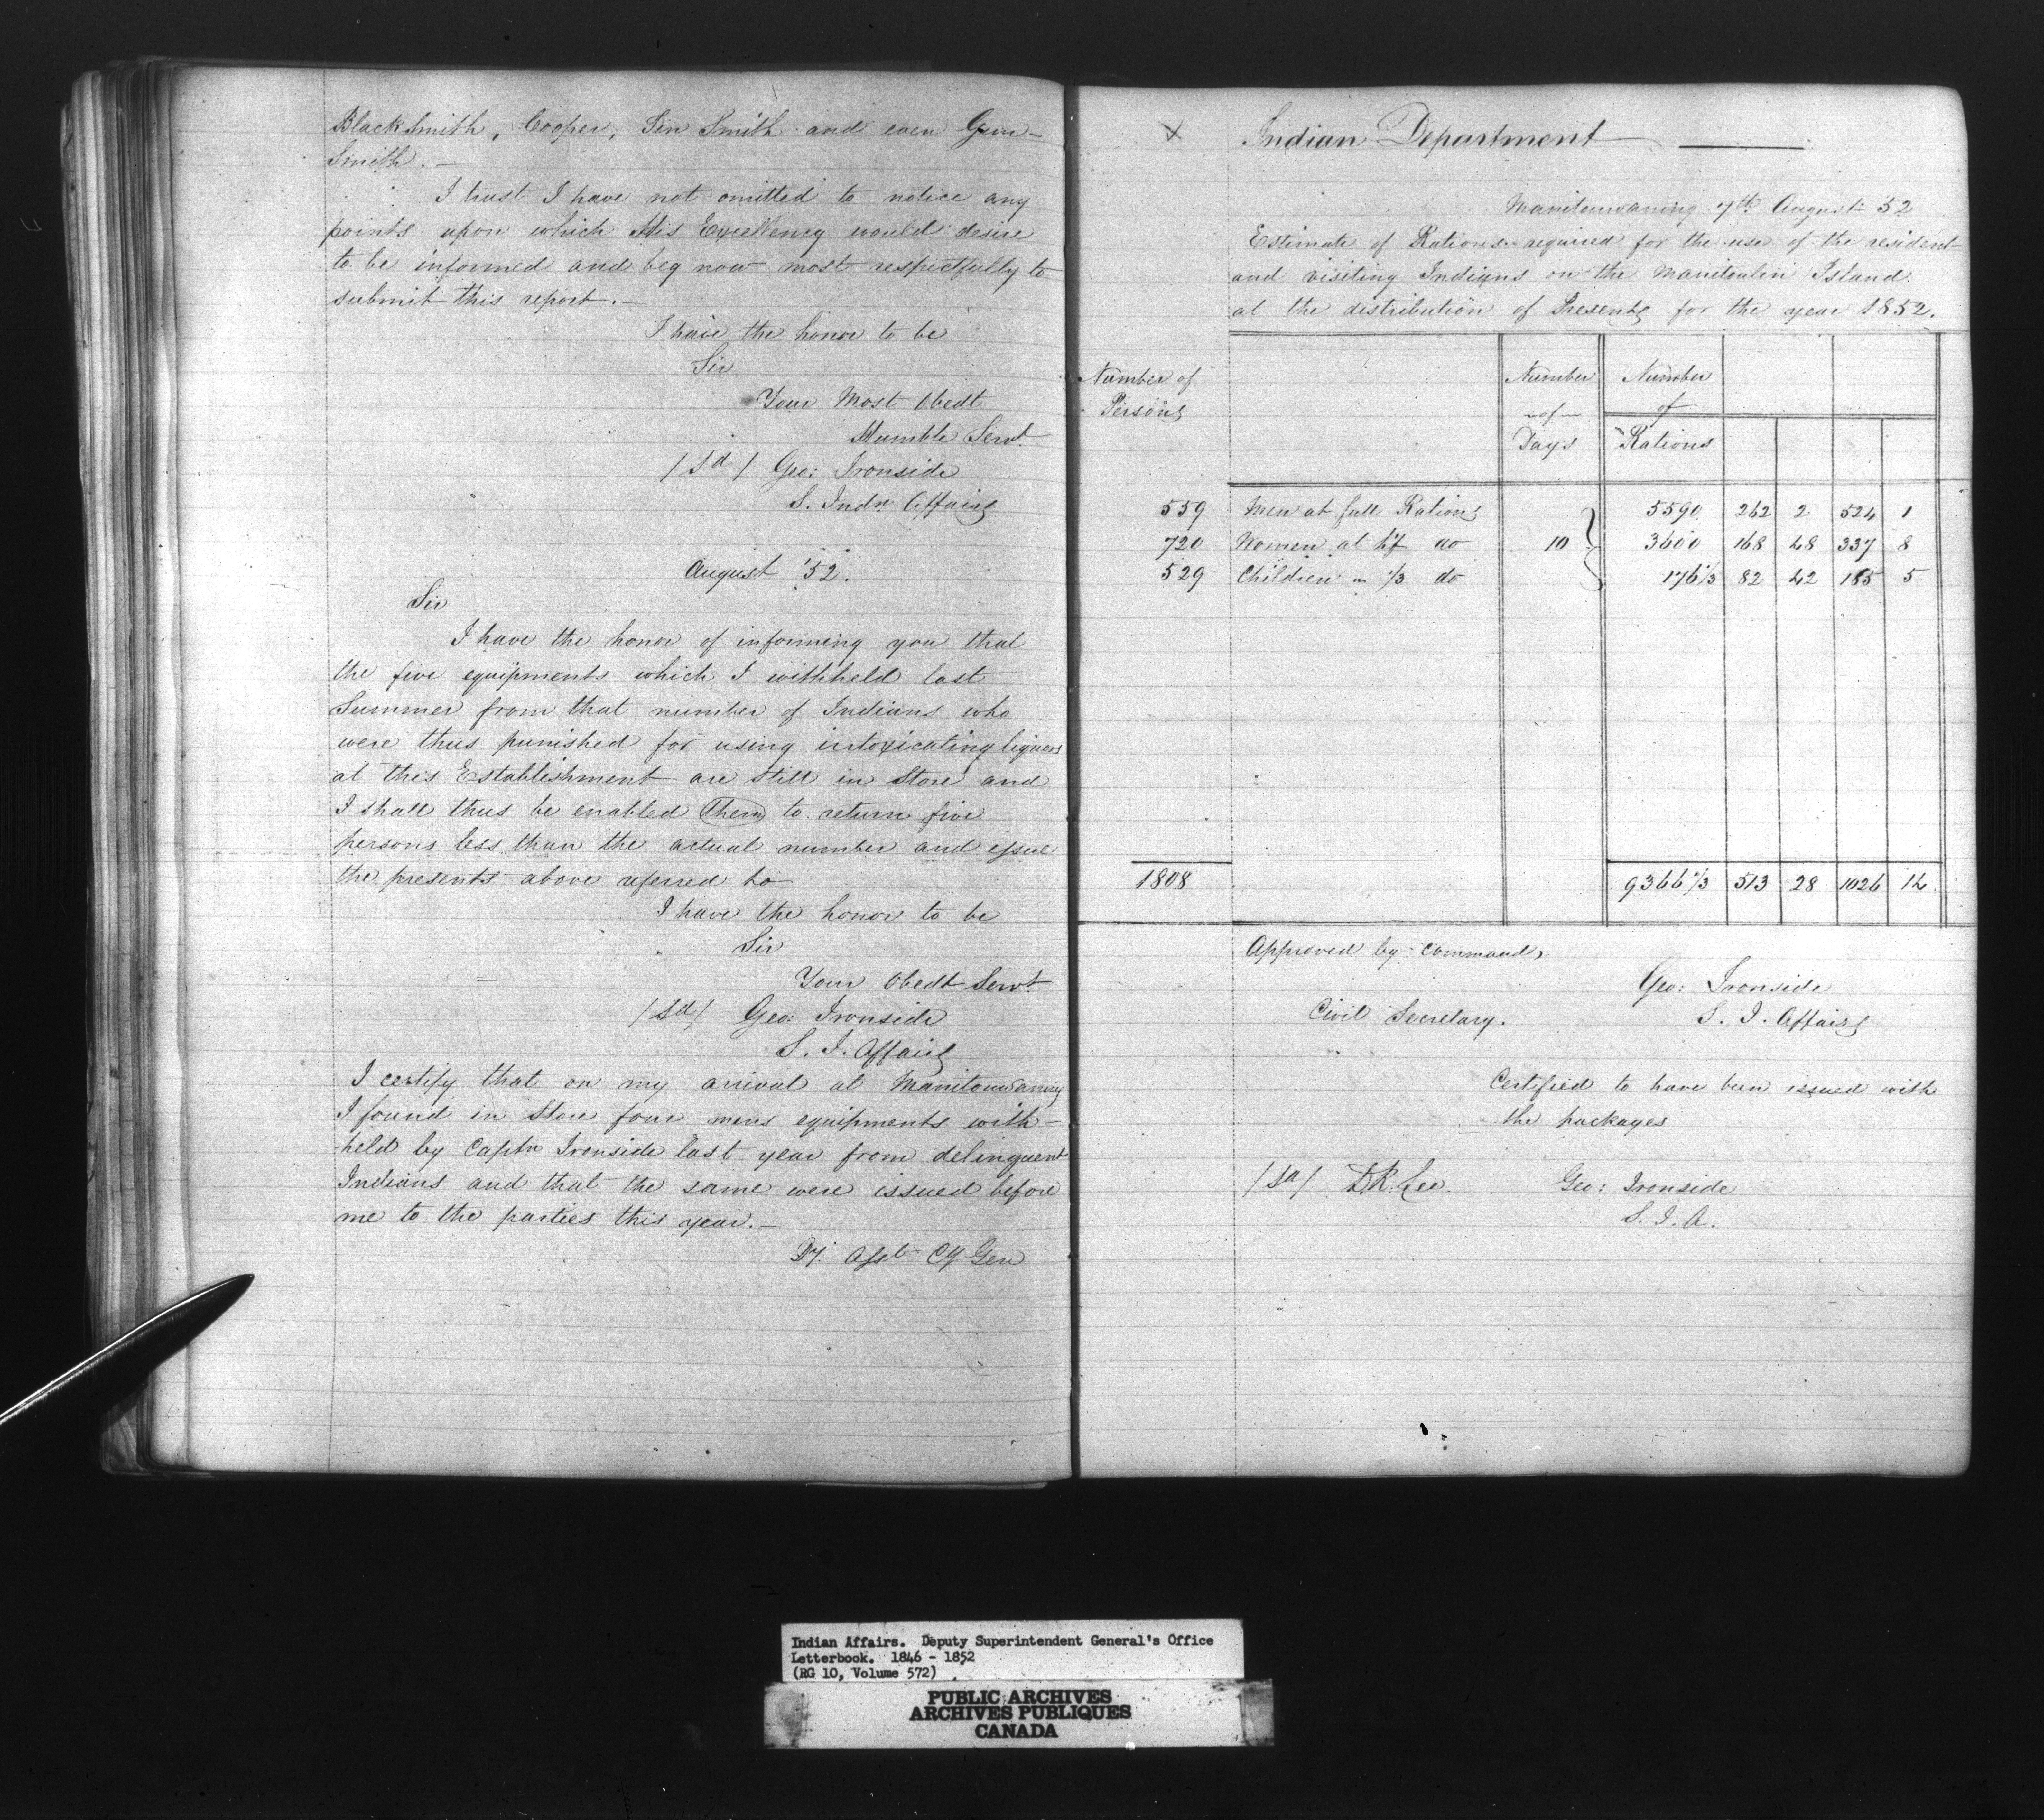 Blacksmith, Cooper, Tin Smith and even Gun-
Smith. —
I trust I have not omitted to notice any
points upon which His Excellency would desire
to be informed and beg now most respectfully to
submit this report. —
I have the honor to be
Sir
Your Most Obedt
Humble Servt
/Sd/ Geo: Ironside
S. Indn Affairs
August '52.
Sir
I have the honor of informing you that
the five equipments which I withheld last
Summer from that number of Indians who
were thus punished for using intoxicating liquors
at this Establishment are still in Store and
I shall thus be enabled (them) to return five
persons less than the actual number and issue
the presents above referred to —
I have the honor to be
Sir
Your Obedt Servt
/Sd/ Geo: Ironside
S. I. Affairs
I certify that on my arrival at Manitouwaning
I found in Store four mens equipments with-
held by Captn Ironside last year from delinquent
Indians and that the same were issued before
me to the parties this year. —
Dy. Asst Cy Gen
x Indian Department —
Manitouwaning 7th August '52
Estimate of Rations required for the use of the resident
and visiting Indians on the Manitoulin Island
at the distribution of Presents for the year 1852.
Number of Persons
Number of Days
Number of Rations
559 Men at full Rations 5590 262 2 524 1
720 Women at hf do 10 3600 168 48 337 8
529 Children " 1/3 do 176 1/3 82 42 185 5
1808 9366 1/3 513 28 1026 14
Approved by command,
Geo: Ironside
Civil Secretary. S. I. Affairs
Certified to have been issued with
the packages
/Sd/ T.R. Lee. Geo: Ironside
S. I. A.
Indian Affairs. Deputy Superintendent General's Office
Letterbook. 1846 - 1852
(RG 10, Volume 572)
PUBLIC ARCHIVES
ARCHIVES PUBLIQUES
CANADA